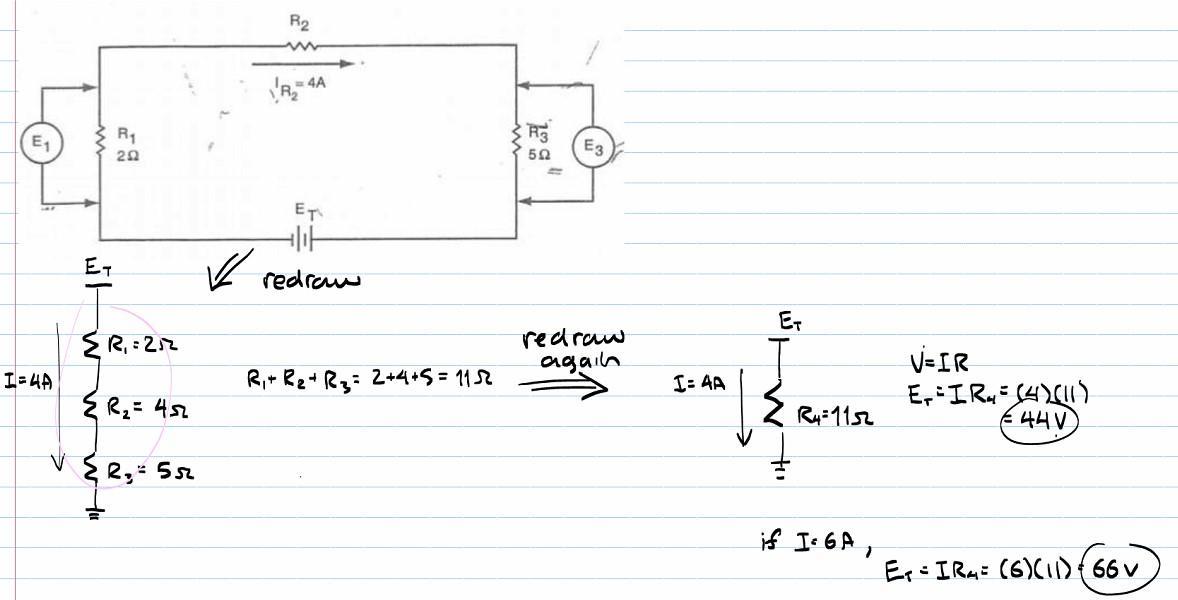 R2
IR2 = 4A
E1
R1
2Ω
R3
5Ω
E3
ET
ET
redraw
I=4A
R1=2Ω
R2= 4Ω
R3= 5Ω
R1+R2+R3= 2+4+5= 11Ω
redraw
again
ET
I=4A
R4=11Ω
V=IR
ET=IR4=(4)(11)
=44V
if I=6A,
ET=IR4=(6)(11)=66V